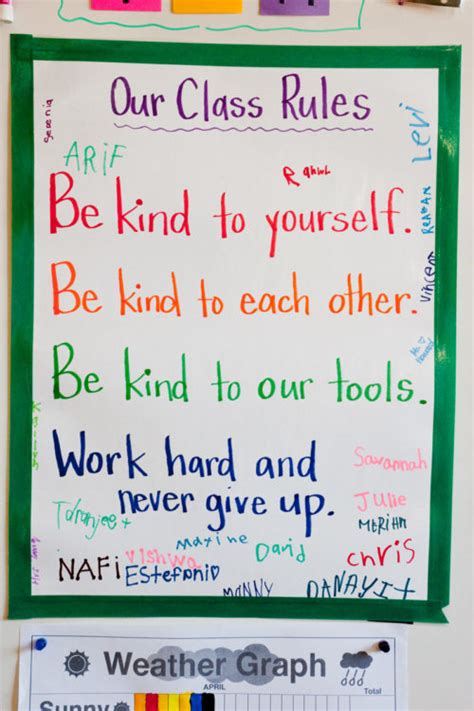 Our Class Rules
Serenia
ARIF
Rahul
Levi
Be kind to yourself.
REAGAN
Be kind to each other.
Vincent
Be kind to our tools.
Work hard and
Savannah
never give up.
Julie
Taranjeet
MERIHAM
Maxine
David
NAFI
Vishwa
chris
EStefani
MANNY
DANAYIT
Weather Graph
APRIL
Total
Sunny